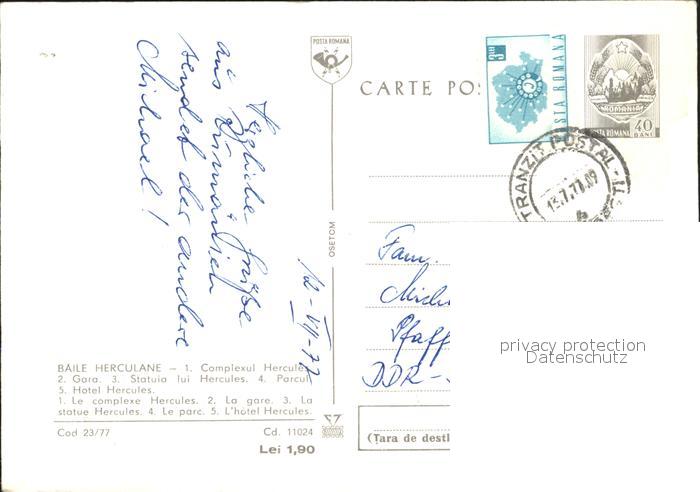 POSTA ROMANA
CARTE POS
3 LEI
POSTA ROMANA
ROMANIA
POSTA ROMANA
40
BANI
TRANZIT POSTAL
13.7.77.09
Herzliche Grüße
aus Rumänien
sendet der andere
Michael!
12-VII-77
OSETOM
Fam.
Mich
Pfaff
DDR-
privacy protection
Datenschutz
BĂILE HERCULANE – 1. Complexul Hercules.
2. Gara. 3. Statuia lui Hercules. 4. Parcul
5. Hotel Hercules.
1. Le complexe Hercules. 2. La gare. 3. La
statue Hercules. 4. Le parc. 5. L'hôtel Hercules.
Cod 23/77
Cd. 11024
Lei 1,90
(Țara de desti